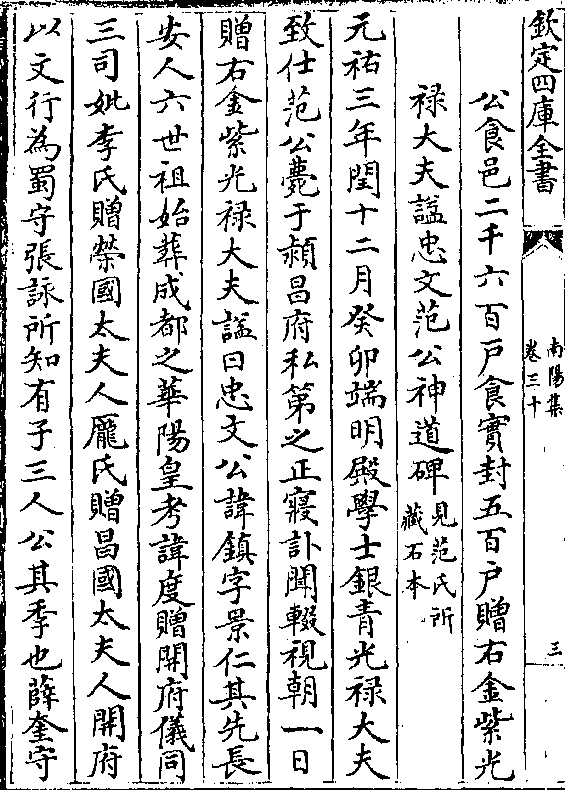 欽定四庫全書
南陽集
卷三十
三
公食邑二千六百戶食實封五百戶贈右金紫光
禄大夫諡忠文范公神道碑
見范氏所
藏石本
元祐三年閏十二月癸卯端明殿學士銀青光禄大夫
致仕范公薨于潁昌府私第之正寢訃聞輟視朝一日
贈右金紫光禄大夫諡曰忠文公諱鎮字景仁其先長
安人六世祖始葬成都之華陽皇考諱度贈開府儀同
三司妣李氏贈榮國太夫人龐氏贈昌國太夫人開府
以文行為蜀守張詠所知有子三人公其季也薛奎守